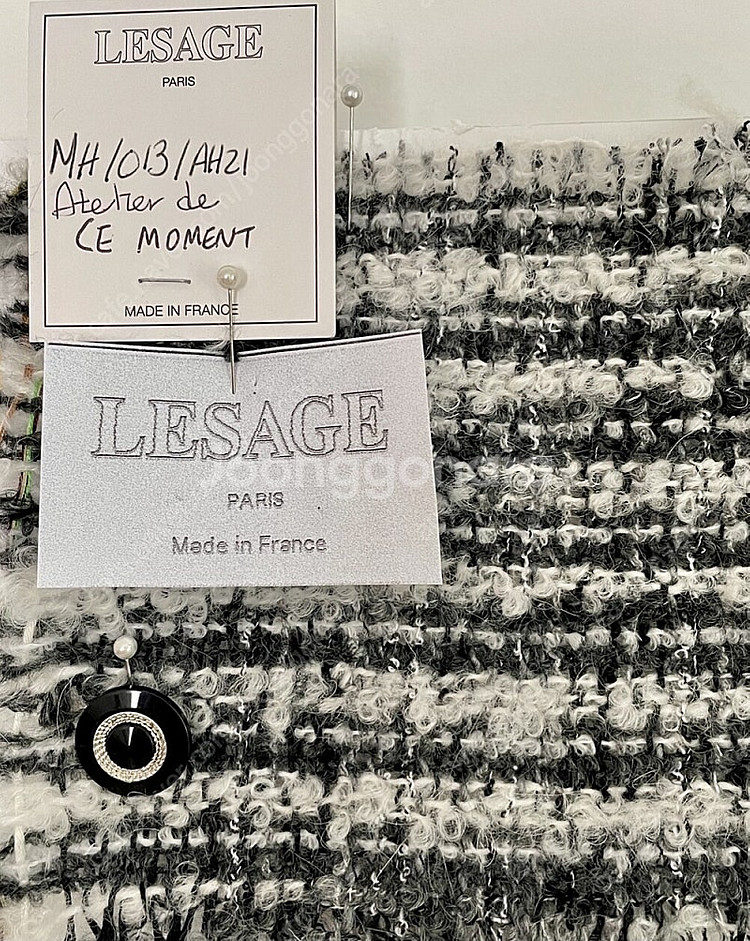 LESAGE
PARIS
MH/013/AH21
Atelier de
CE MOMENT
MADE IN FRANCE
LESAGE
joonggonara
PARIS
Made in France